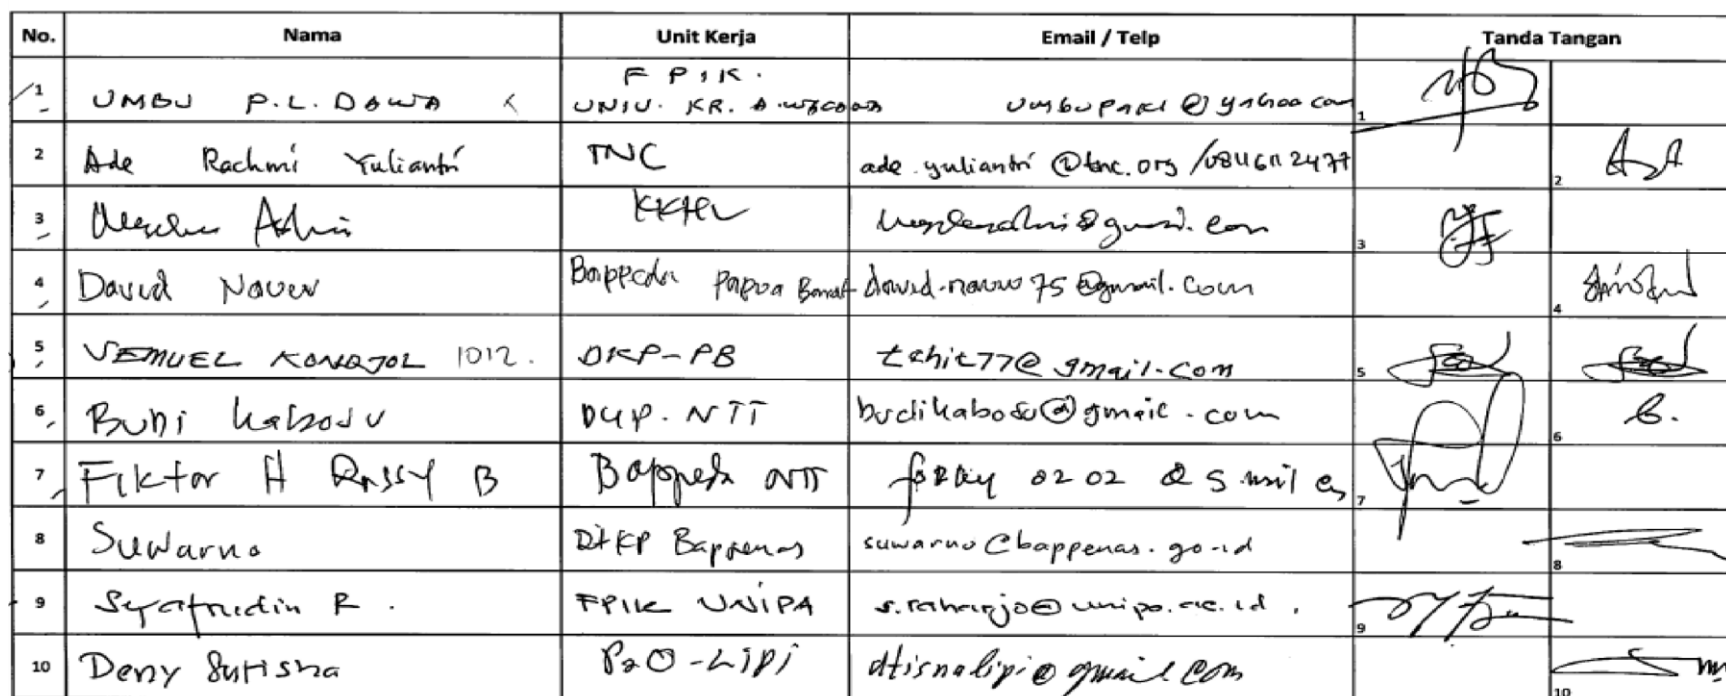 No. Nama Unit Kerja Email / Telp Tanda Tangan
1 UMBU P.L. DAWA FPIK. UNIV. KR. A. WACANA umbupaki@yahoo com 1
2 Ade Rachmi Yuliantri TNC ade.yuliantri@tnc.org /08116112477 2
3 KKHL 3
4 David Bappeda Papua Barat 75@gmail.com 4
5 VEMUEL 1012. DKP-PB tehit77@gmail.com 5
6 BUDI Kabosu DKP. NTT budikabosu@gmail.com 6
7 Fiktor H Rassy B Bappeda NTT 0202 @ 7
8 Suwarno DIKP Bappenas suwarno@bappenas.go.id 8
9 Syafrudin R. FPIK UNIPA s.raharjo@unipa.ac.id. 9
10 Deny Sutisna P2O-LIPI dtisnalipi@gmail com 10